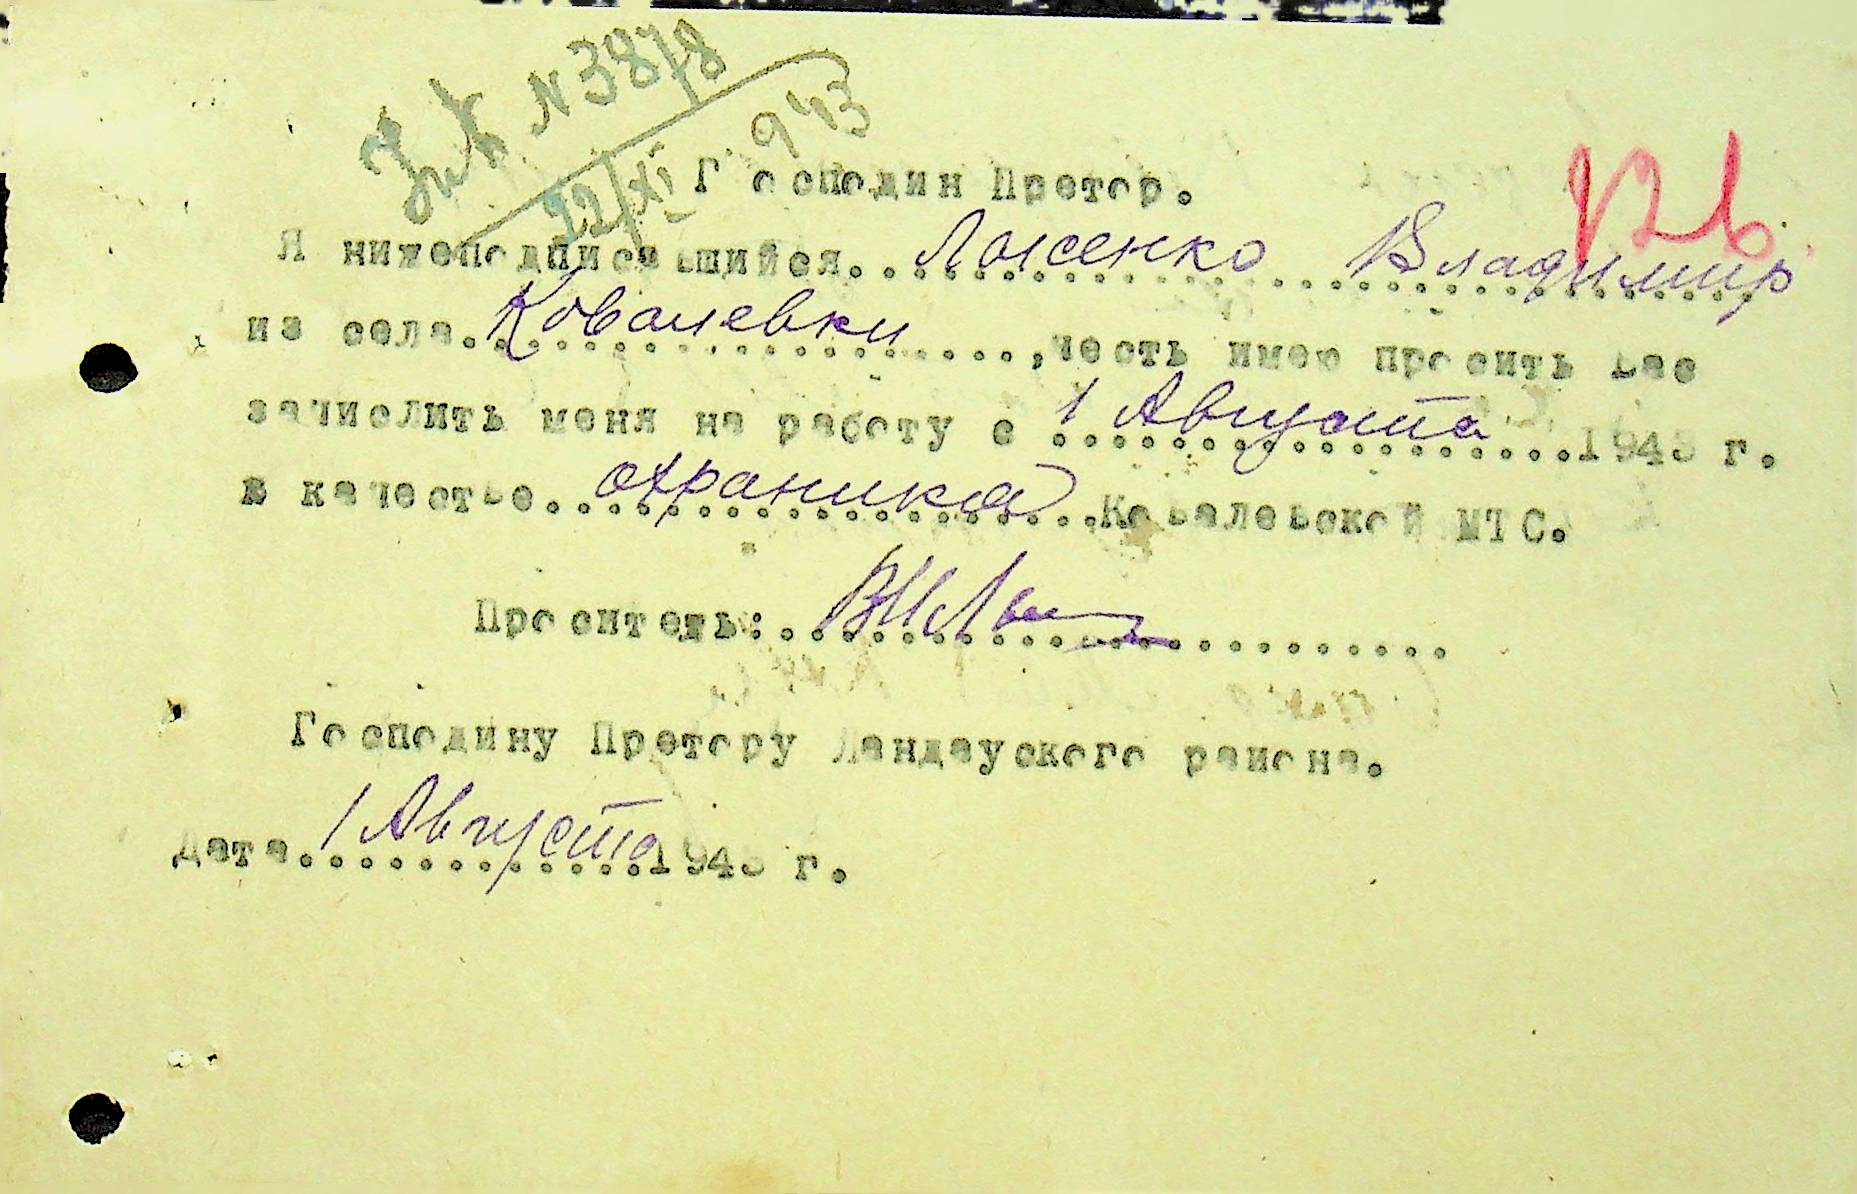 № 3878
22/XI 943
Господин Претор.
Я нижеподписавшийся..Лысенко Владимир
из села.Ковалевки.....,честь имею просить Вас
зачислить меня на работу с 1 Августа....1943 г.
в качестве..охраника...Ковалевской МТС.
Проситель:....................
Господину Претору Ландауского района.
Дата.1 Августа 1943 г.